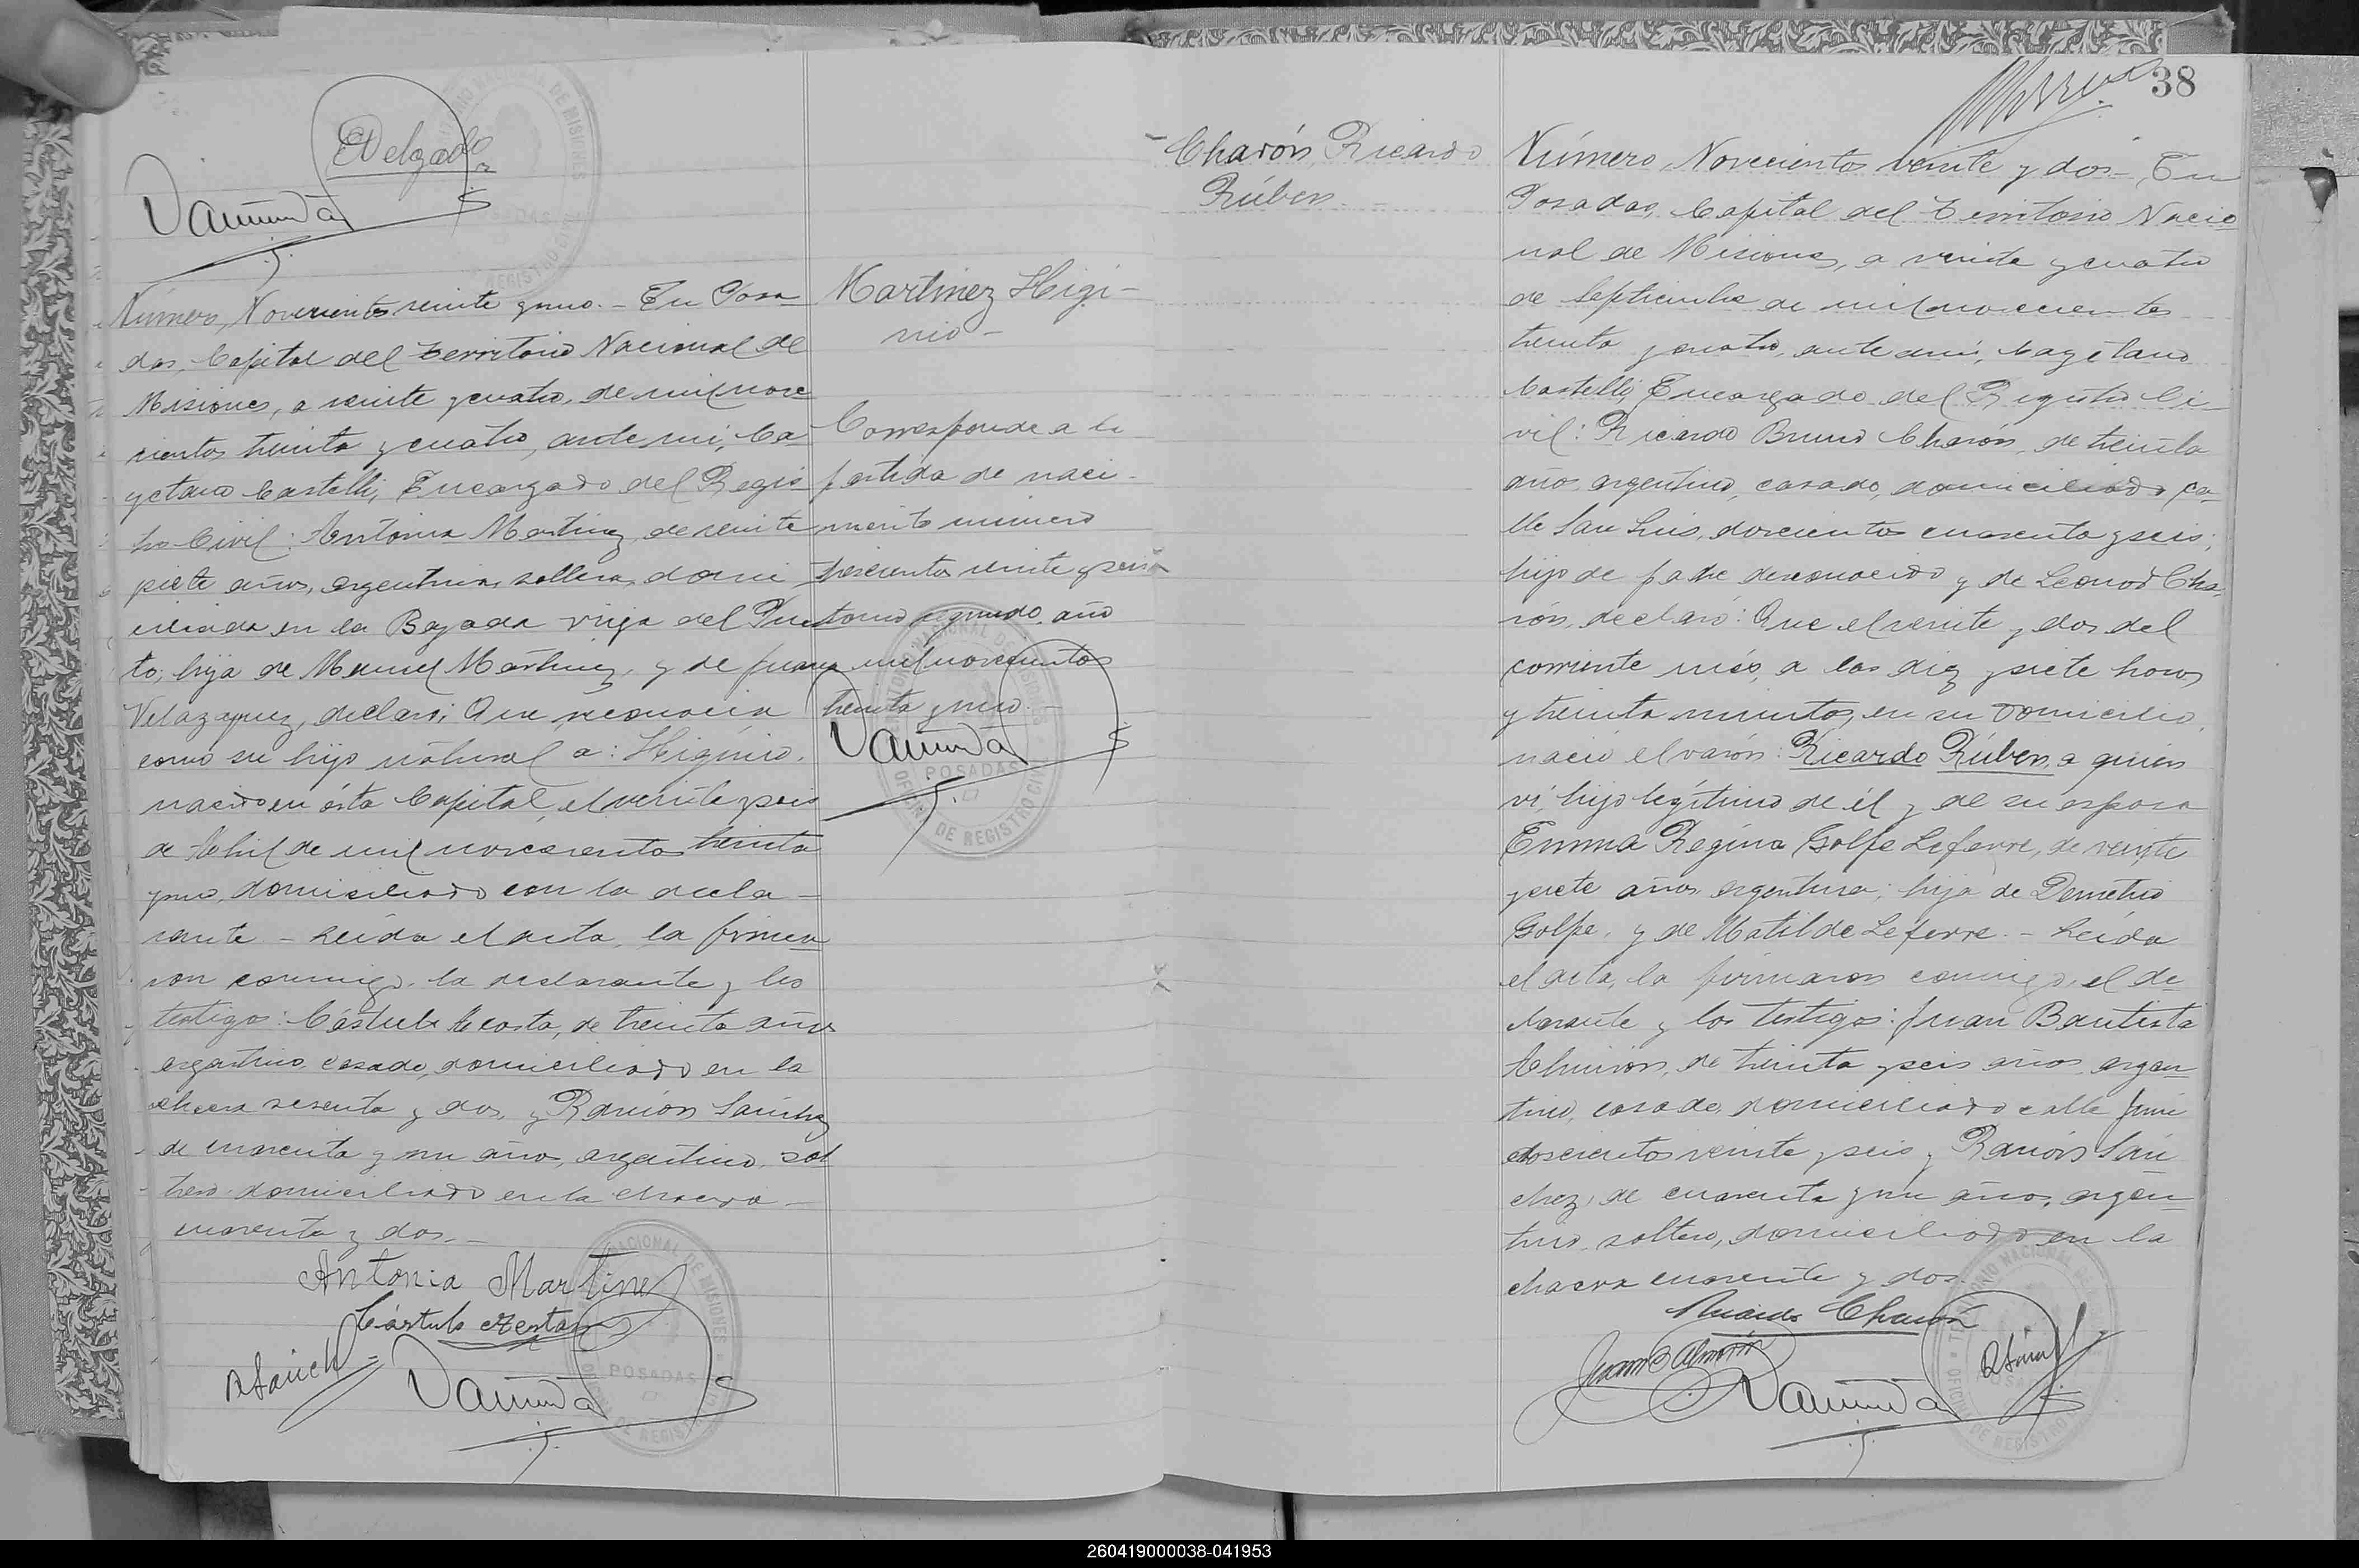 EDelgado
Número, Novecientos veinte y uno.- En Posa
das, Capital del Territorio Nacional de
Misiones, a veinte y cuatro, de mil nove
cientos treinta y cuatro, ante mí, Ca
yetano Castelli, Encargado del Regis
tro Civil: Antonia Martinez, de veinte
siete años, argentina, soltera, domi
ciliada en la Bajada vieja del Puer
to; hija de Manuel Martinez, y de Juana
Velazquez, declaró: Que reconocía
como su hijo natural a: Higinio,
nacido en ésta Capital, el veinte y seis
de Abril de mil novecientos treinta
y uno, domiciliado con la decla-
rante - Leída el acta, la firma
ron conmigo, la declarante y los
testigos: Cástulo Acosta, de treinta años
argentino, casado, domiciliado en la
chacra sesenta y dos, y Ramón Sánchez
de cuarenta y un años, argentino, sol
tero domiciliado en la chacra
cuarenta y dos.-
Antonia Martinez
Cástulo Acosta
RSánch
Martinez Higi-
nio-
Corresponde a la
partida de naci-
miento número
trescientos veinte y seis
tomo segundo, año
mil novecientos
treinta y uno.-
TERRITORIO NACIONAL DE MISIONES
POSADAS
OFICINA DE REGISTRO CIVIL
38
Charón, Ricardo
Rúben
Número, Novecientos veinte y dos.- En
Posadas, Capital del Territorio Nacio
nal de Misiones, a veinte y cuatro
de Septiembre de mil novecientos
treinta y cuatro, ante mí, Cayetano
Castelli, Encargado del Registro Ci-
vil: Ricardo Bruno Charón, de treinta
años, argentino, casado, domiciliado ca-
lle San Luis, doscientos cuarenta y seis;
hijo de padre desconocido y de Leonor Cha-
rón, declaró: Que el veinte y dos del
corriente més, a las diez y siete horas
y treinta minutos, en su domicilio,
nació el varón: Ricardo Rúben, a quien
ví, hijo legítimo de él y de su esposa
Emma Regina Golpe Lefevre, de veinte
y siete años, argentina; hija de Demetrio
Golpe, y de Matilde Lefevre.- Leída
el acta, la firmaron conmigo, el de-
clarante y los testigos: Juan Bautista
Almirón, de treinta y seis años, argen-
tino, casado, domiciliado calle Junín
doscientos veinte y seis y Ramón Sán
chez, de cuarenta y un años, argen-
tino, soltero, domiciliado en la
chacra cuarenta y dos.
Ricardo Charón
Juan B Almirón
RSánch
260419000038-041953